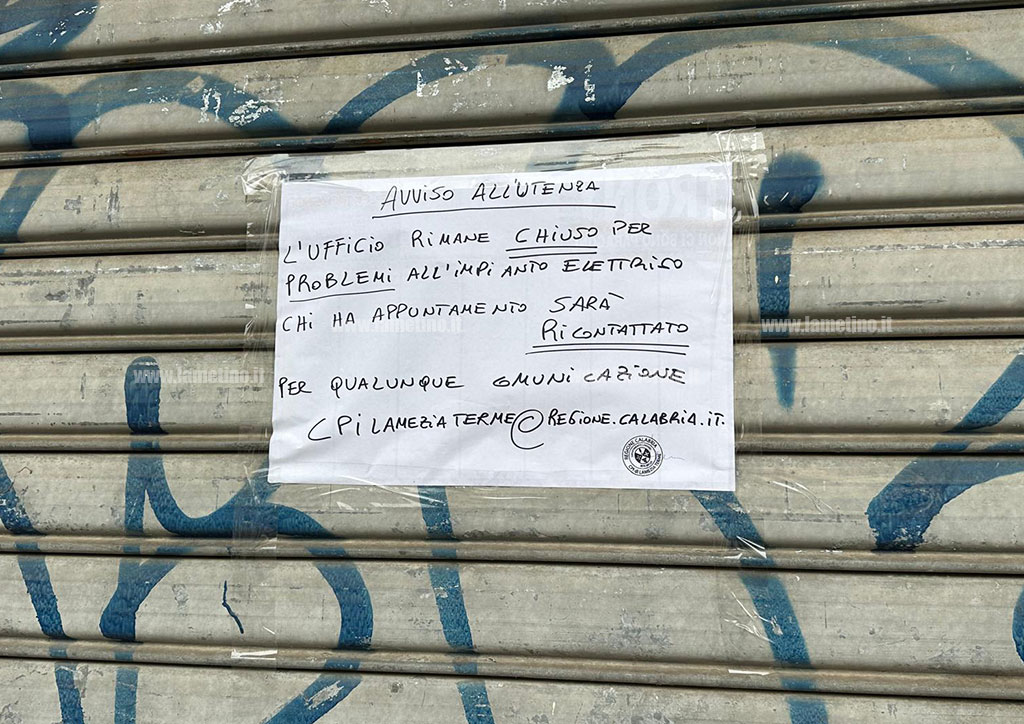 AVVISO ALL'UTENZA
L'UFFICIO RIMANE CHIUSO PER
PROBLEMI ALL'IMPIANTO ELETTRICO
CHI HA APPUNTAMENTO SARÀ
RICONTATTATO
PER QUALUNQUE COMUNICAZIONE
CPILAMEZIATERME@REGIONE.CALABRIA.IT.
REGIONE CALABRIA
www.lametino.it
www.lametino.it
www.lametino.it
www.lametino.it